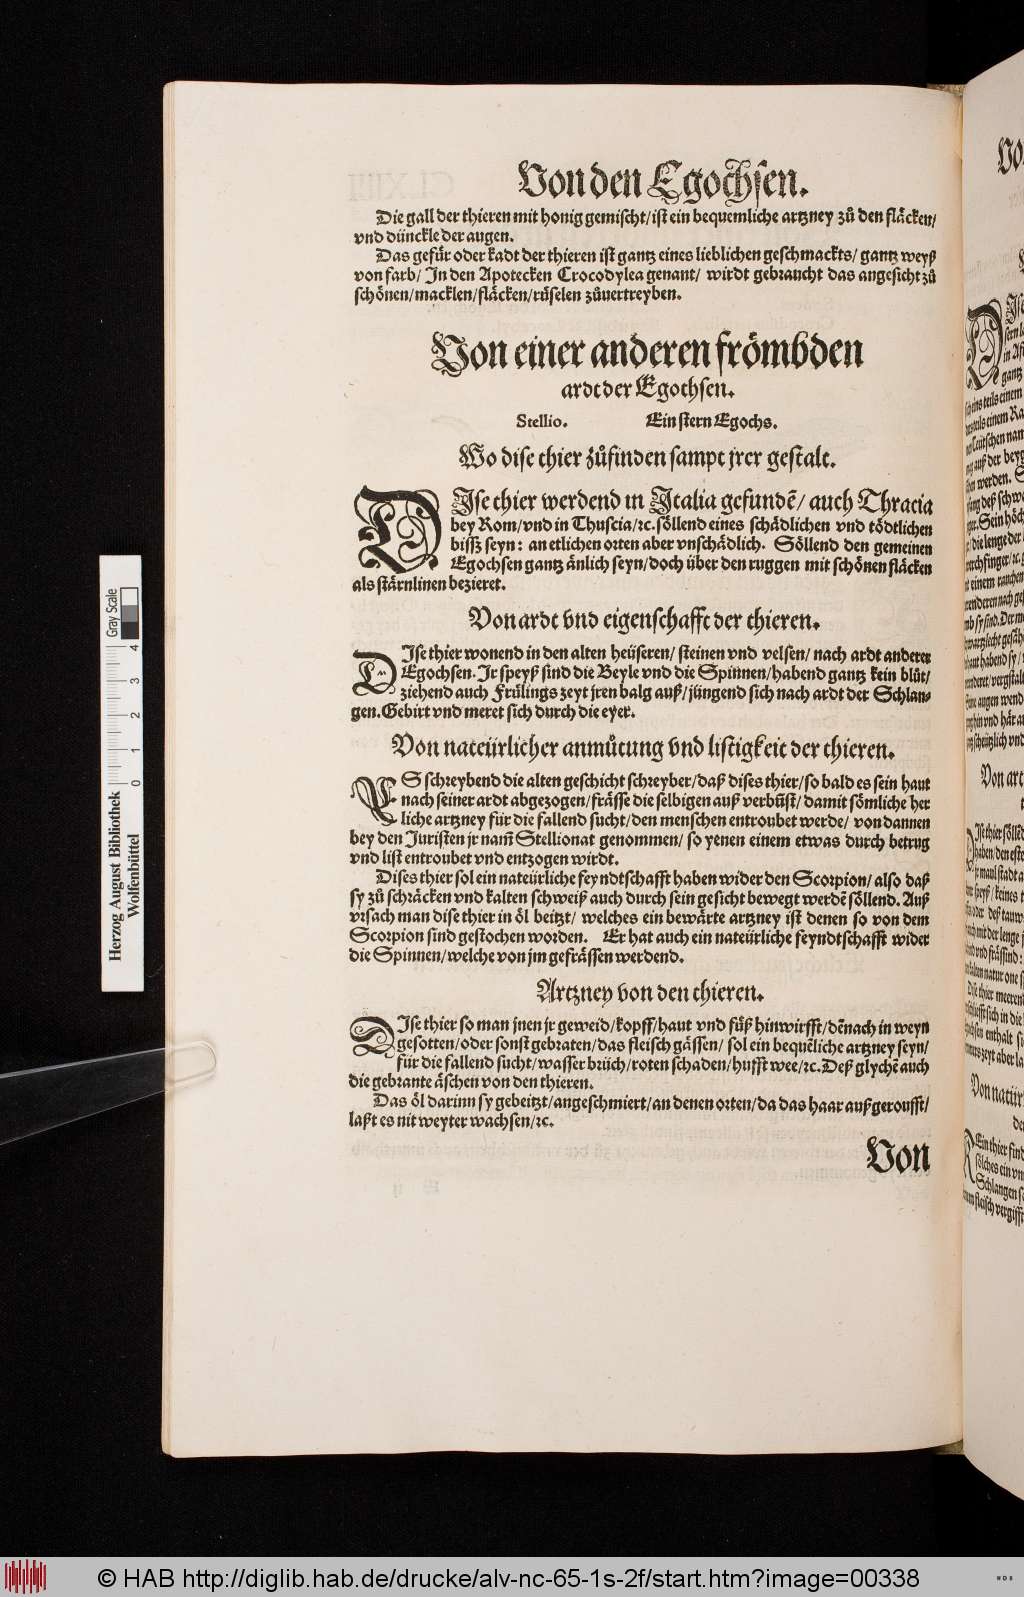 Von den Egochsen.
Die gall der thieren mit honig gemischt/ ist ein bequemliche artzney zů den fläcken/
vnd dünckle der augen.
Das gefür oder kadt der thieren ist gantz eines lieblichen geschmackts/ gantz weyß
von farb/ In den Apotecken Crocodylea genant/ wirdt gebraucht das angesicht zů
schönen/ macklen/ fläcken/ rüselen zůuertreyben.
Von einer anderen frömbden
ardt der Egochsen.
Stellio. Ein stern Egochs.
Wo dise thier zůfinden sampt jrer gestalt.
DIse thier werdend in Italia gefundē/ auch Thracia
bey Rom/ vnd in Thuscia/ ꝛc. söllend eines schädlichen vnd tödtlichen
bissz seyn: an etlichen orten aber vnschädlich. Söllend den gemeinen
Egochsen gantz änlich seyn/ doch über den ruggen mit schönen fläcken
als stärnlinen bezieret.
Von ardt vnd eigenschafft der thieren.
DIse thier wonend in den alten heüseren/ steinen vnd velsen/ nach ardt anderer
Egochsen. Ir speyß sind die Beyle vnd die Spinnen/ habend gantz kein blůt/
ziehend auch Frülings zeyt jren balg auß/ jüngend sich nach ardt der Schlan-
gen. Gebirt vnd meret sich durch die eyer.
Von nateürlicher anmůtung vnd listigkeit der thieren.
ES schreybend die alten geschicht schreyber/ daß dises thier/ so bald es sein haut
nach seiner ardt abgezogen/ frässe die selbigen auß verbunst/ damit sömliche her
liche artzney für die fallend sucht/ den menschen entroubet werde/ von dannen
bey den Juristen jr nam̃ Stellionat genommen/ so yenen einem etwas durch betrug
vnd list entroubet vnd entzogen wirdt.
Dises thier sol ein nateürliche feyndtschafft haben wider den Scorpion/ also daß
sy zů schräcken vnd kalten schweiß auch durch sein gesicht bewegt werdē söllend. Auß
vrsach man dise thier in öl beitzt/ welches ein bewärte artzney ist denen so von dem
Scorpion sind gestochen worden. Er hat auch ein nateürliche feyndtschafft wider
die Spinnen/ welche von jm gefrässen werdend.
Artzney von den thieren.
DIse thier so man jnen jr geweid/ kopff/ haut vnd fůß hinwirfft/ dēnach in weyn
gesotten/ oder sonst gebraten/ das fleisch gässen/ sol ein bequēliche artzney seyn/
für die fallend sucht/ wasser brüch/ roten schaden/ hufft wee/ ꝛc. Deß glychē auch
die gebrante äschen von den thieren.
Das öl darinn sy gebeitzt/ angeschmiert/ an denen orten/ da das haar außgeroufft/
laßt es nit weyter wachsen/ ꝛc.
Von
Herzog August Bibliothek
Wolfenbüttel
0 1 2 3 4
Gray Scale
© HAB http://diglib.hab.de/drucke/alv-nc-65-1s-2f/start.htm?image=00338